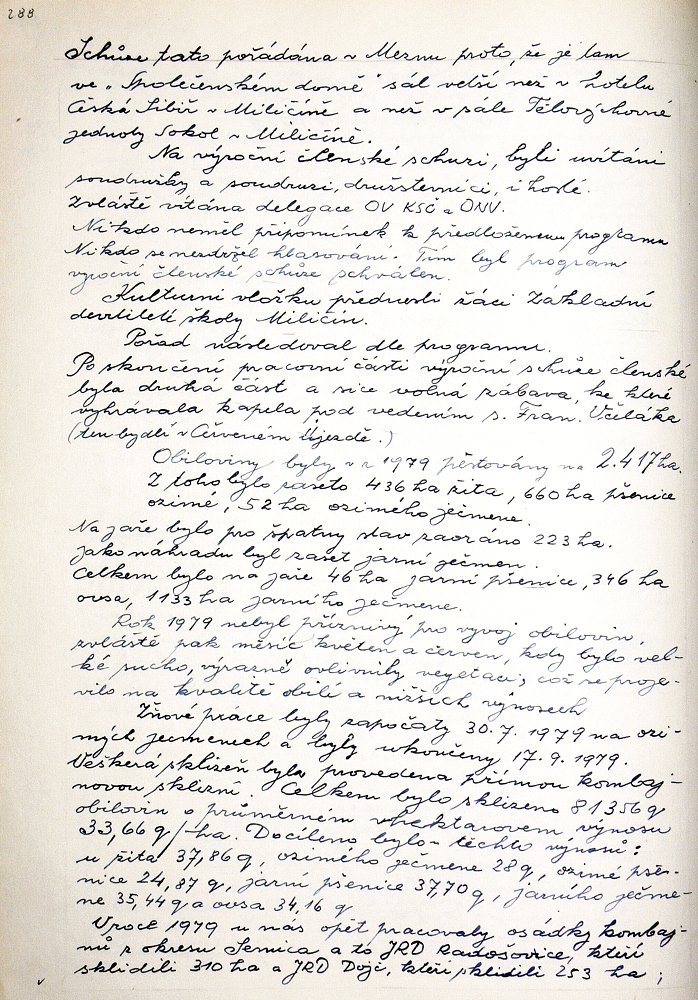 288
Schůze tato pořádána v Meznu proto, že je tam
ve „Společenském domě“ sál vetší než v hotelu
Česká Sibiř v Miličíně a než v sále Tělovýchovné
jednoty Sokol v Miličíně.
Na výroční členské schuzi, byli uvítáni
soudružky a soudruzi, družsterníci, i hosté.
Zvláště vítána delegace OV KSČ a ONV.
Nikdo neměl připomínek k předloženému programu
Nikdo se nezdržel hlasování. Tím byl program
výroční členské schůze schválen.
Kulturní vložku přednesli žáci Základní
devítileté školy Miličín.
Pořad následoval dle programu.
Po skončení pracovní části výroční schůze členské
byla druhá část a sice volná zábava, ke které
vyhrávala kapela pod vedením s. Fran. Včeláka
(ten bydlí v Červeném Újezdě.)
Obiloviny byly v r 1979 pěstovány na 2.417 ha.
Z toho bylo zaseto 436 ha žita, 660 ha pšenice
ozimé, 52 ha ozimého ječmene.
Na jaře bylo pro špatný stav zaoráno 223 ha.
Jako náhradu byl zaset jarní ječmen.
Celkem bylo na jaře 46 ha jarní pšenice, 346 ha
ovsa, 1133 ha jarního ječmene.
Rok 1979 nebyl příznivý pro vyvoj obilovin,
zvláště pak měsíc květen a červen, kdy bylo vel-
ké sucho, výrazně ovlivnily vegetaci; což se proje-
vilo na kvalitě obilí a nižších výnosech
Žňové práce byly započaty 30. 7. 1979 na ozi-
mých ječmenech a byly ukončeny 17. 9. 1979.
Veškerá sklizeň byla provedena přímou kombaj-
novou sklizní. Celkem bylo sklizeno 81356 q
obilovin o průměrném vhektarovem výnosu
33,66 q /-ha. Docíleno bylo-těchto výnosů:
u žita 37,86 q, ozimého ječmene 28 q, ozimé pše-
nice 24,87 q, jarní pšenice 37,70 q, jarního ječme-
ne 35,44 q a ovsa 34,16 q
V roce 1979 u nás opět pracovaly osádky kombaj-
nů z okresu Senica, a to JRD Radošovice, kteří
sklidili 310 ha a JRD Dojč, kteří sklidili 253 ha;